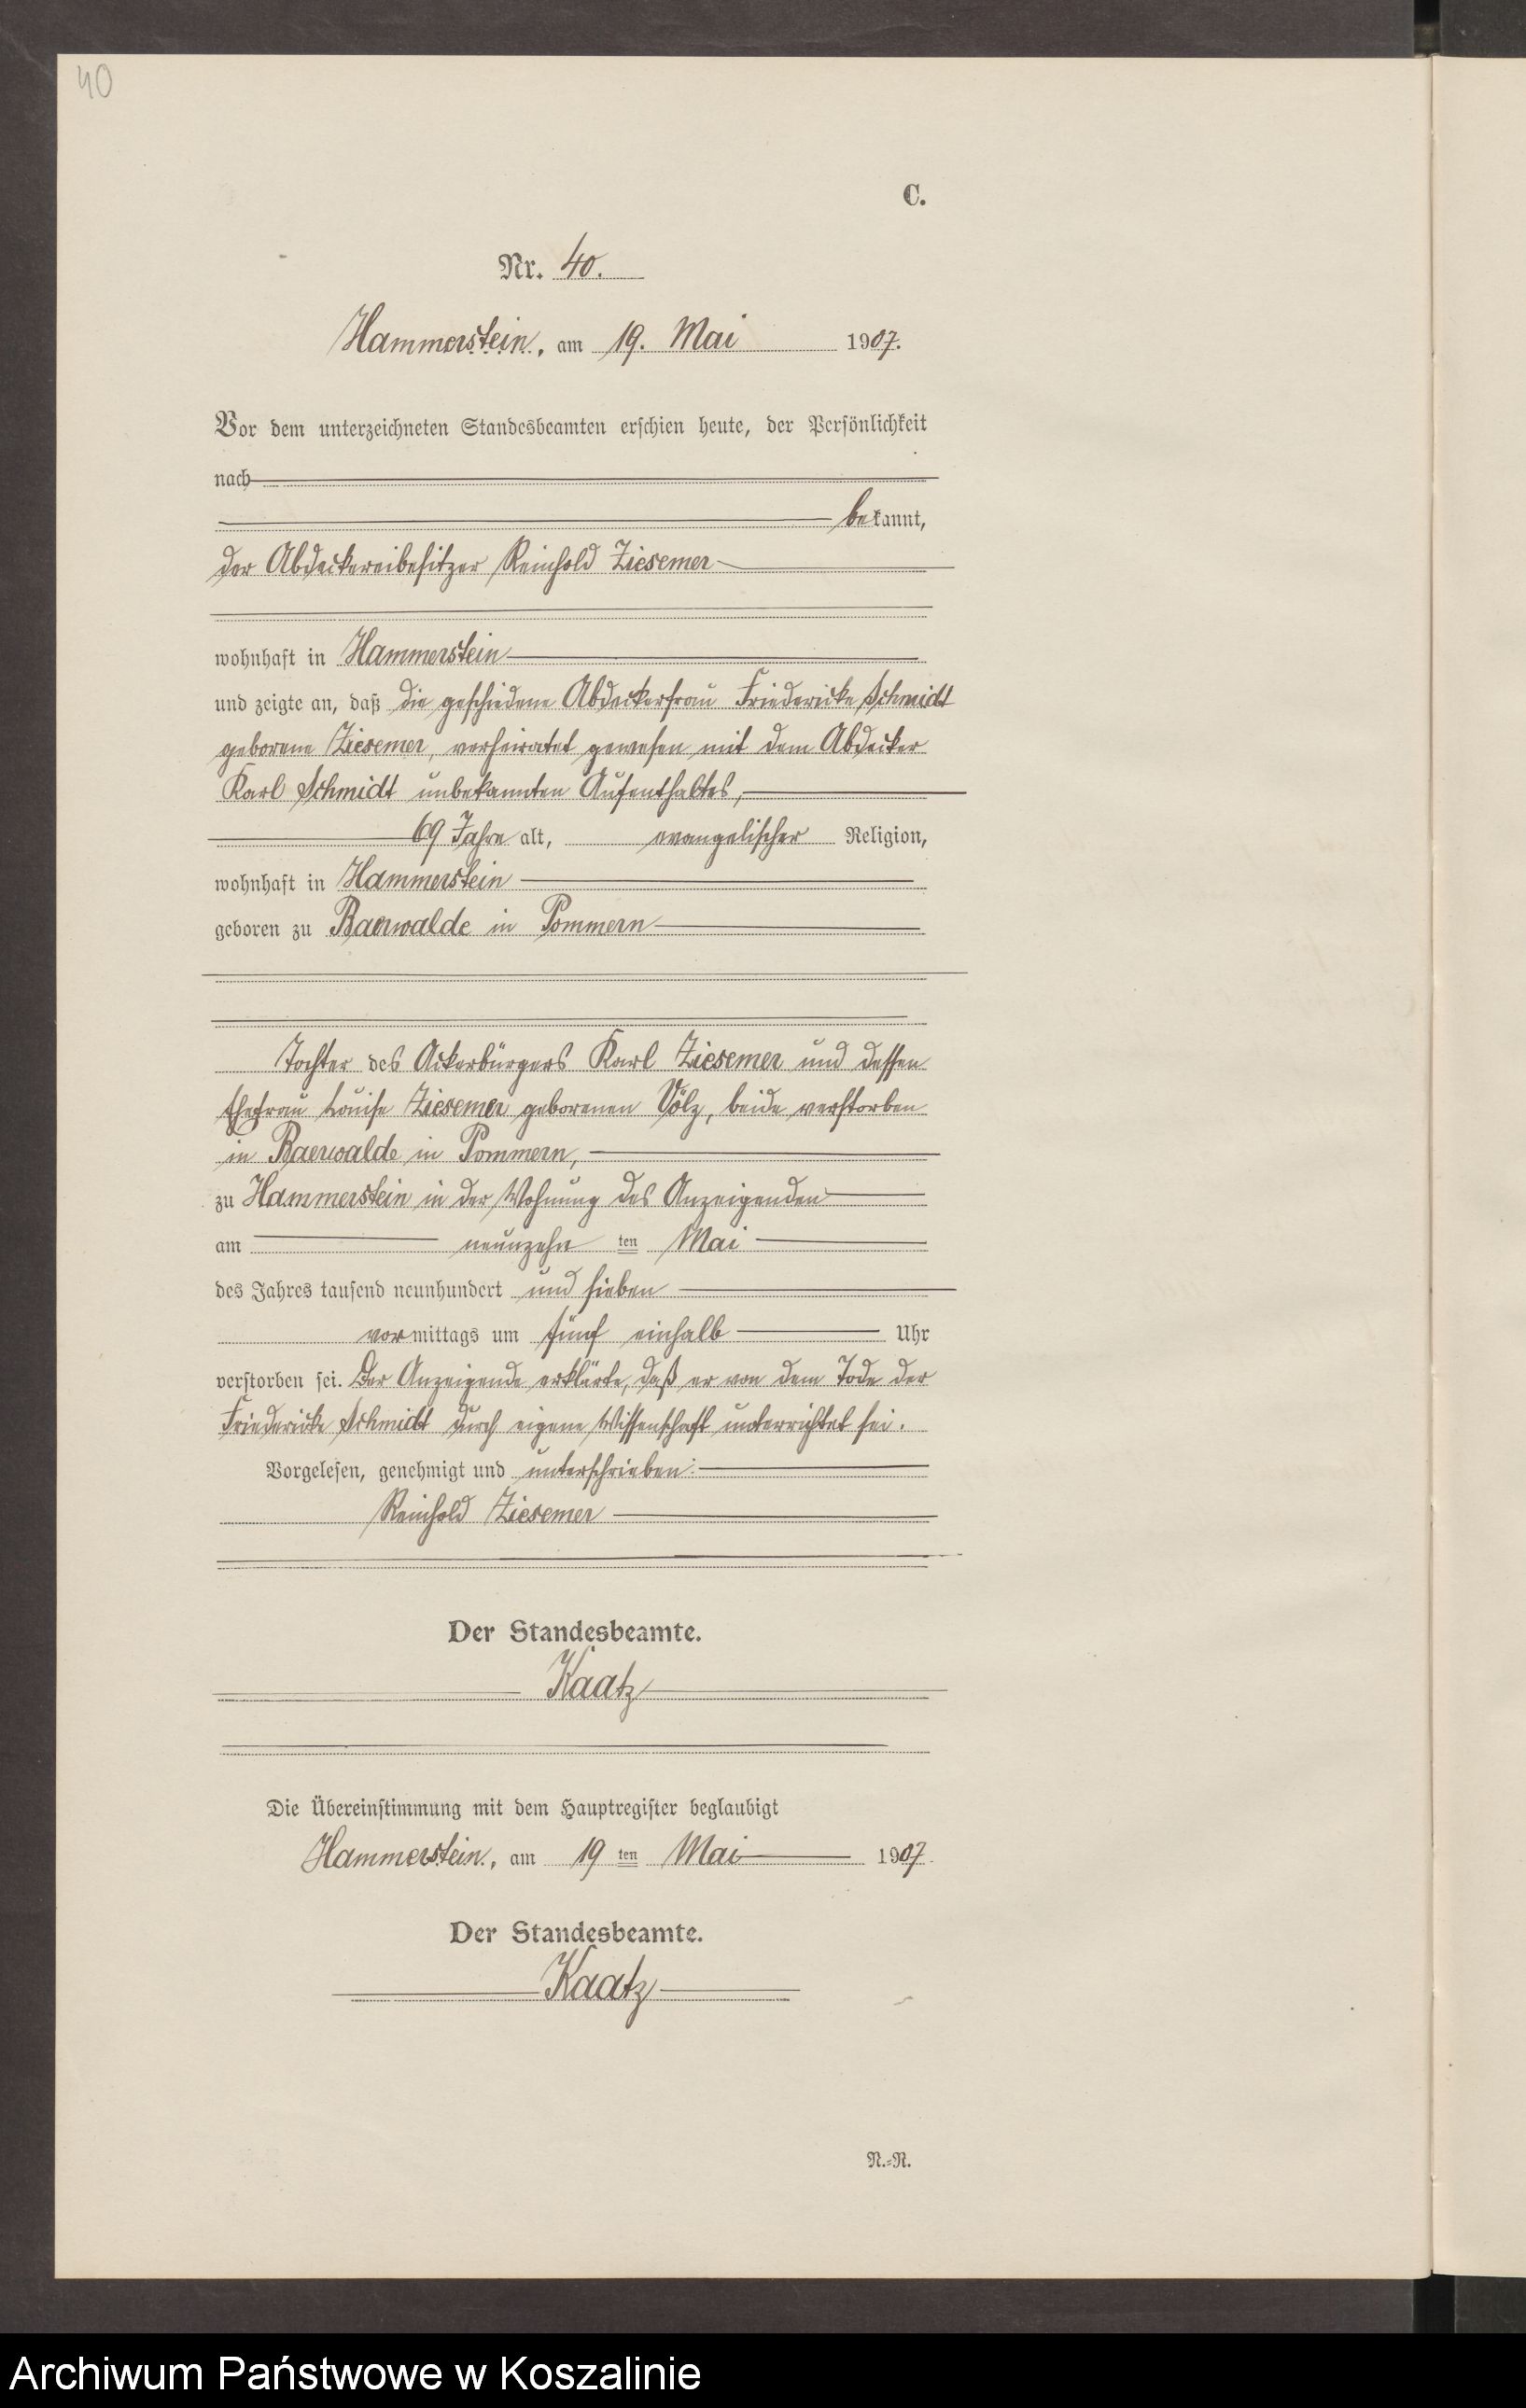 40
C.
Nr. 40.
Hammerstein, am 19. Mai 1907.
Vor dem unterzeichneten Standesbeamten erschien heute, der Persönlichkeit
nach
bekannt,
der Abdeckereibesitzer Reinhold Ziesemer
wohnhaft in Hammerstein
und zeigte an, daß die geschiedene Abdeckerfrau Friedericke Schmidt
geborene Ziesemer, verheiratet gewesen mit dem Abdecker
Karl Schmidt unbekannten Aufenthaltes,
69 Jahre alt, evangelischer Religion,
wohnhaft in Hammerstein
geboren zu Baerwalde in Pommern
Tochter des Ackerbürgers Karl Ziesemer und dessen
Ehefrau Louise Ziesemer geborenen Völz, beide verstorben
in Baerwalde in Pommern,
zu Hammerstein in der Wohnung des Anzeigenden
am neunzehn ten Mai
des Jahres tausend neunhundert und sieben
vormittags um fünf einhalb Uhr
verstorben sei. Der Anzeigende erklärte, daß er von dem Tode der
Friedericke Schmidt durch eigene Wissenschaft unterrichtet sei.
Vorgelesen, genehmigt und unterschrieben:
Reinhold Ziesemer
Der Standesbeamte.
Kaatz
Die Übereinstimmung mit dem Hauptregister beglaubigt
Hammerstein, am 19 ten Mai 1907.
Der Standesbeamte.
Kaatz
N.=R.
Archiwum Państwowe w Koszalinie